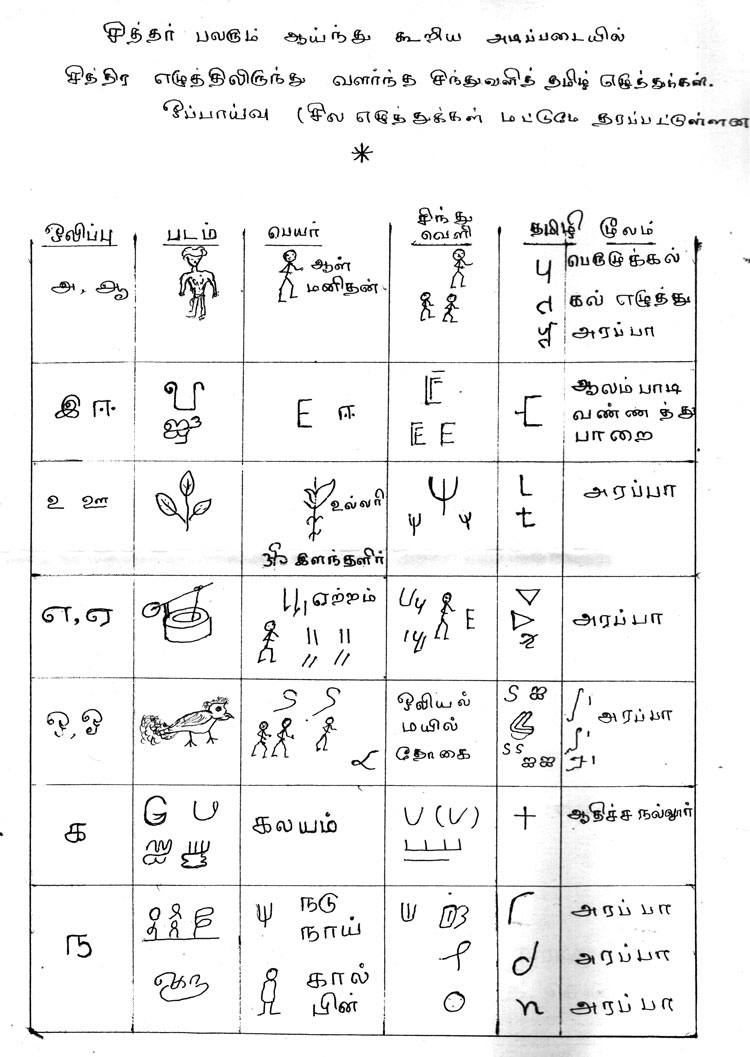 சித்தர் பலரும் ஆய்ந்து கூறிய அடிப்படையில்
சித்திர எழுத்திலிருந்து வளர்ந்த சிந்துவளித் தமிழ் எழுத்துக்கள்.
ஒப்பாய்வு (சில எழுத்துக்கள் மட்டுமே தரப்பட்டுள்ளன
ஒலிப்பு படம் பெயர் சிந்து வெளி தமிழி மூலம்
அ, ஆ
ஆள்
மனிதன்
பெருடுக்கல்
கல் எழுத்து
அரப்பா
இ ஈ
E ஈ
E
ஆலம்பாடி
வண்ணத்து
பாறை
உ ஊ
உல்லரி
இளந்தளிர்
அரப்பா
எ, ஏ
ஏற்றம்
E
அரப்பா
ஒ, ஓ
ஒலியல்
மயில்
தோகை
அரப்பா
க
G U
கலயம்
U (U)
+
ஆதிச்ச நல்லூர்
ந
நடு
நாய்
கால்
பின்
அரப்பா
அரப்பா
அரப்பா